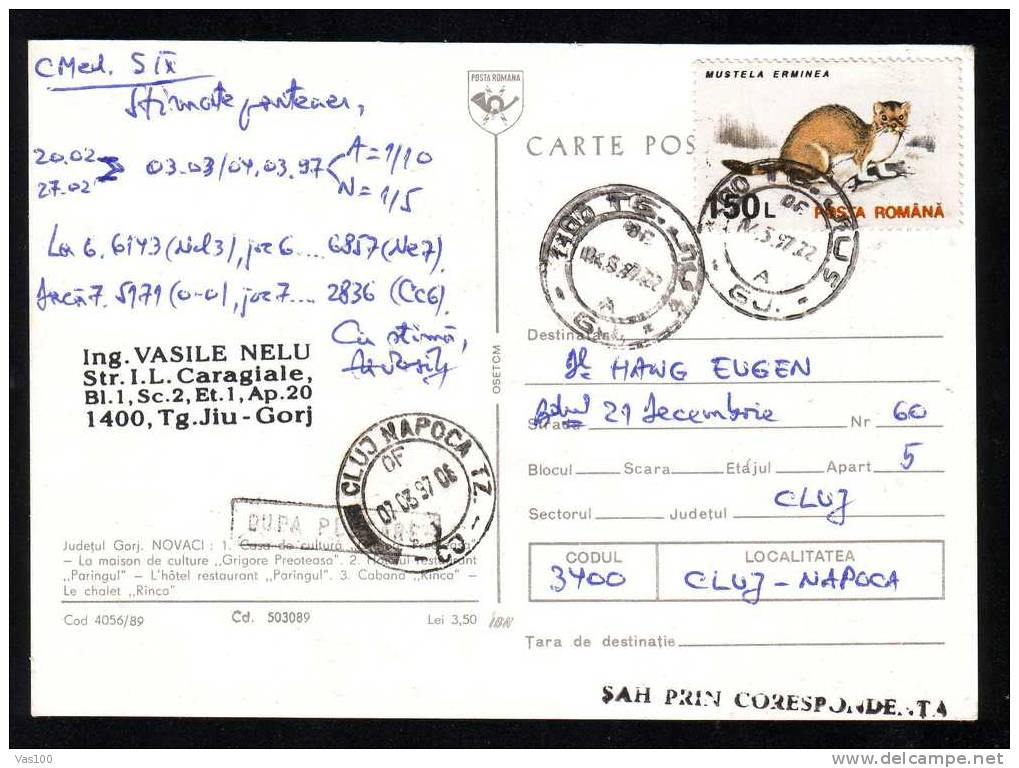 CMed. S IX
Stimate partener,
20.02
27.02
03.03/04.03.97
A = 1/10
N = 1/5
La 6. 6143 (Nd3), joc 6 ... 6857 (Ne7)
7. 5171 (0-0), joc 7 .... 2836 (Cc6)
Cu stimă,
Ing. VASILE NELU
Str. I.L. Caragiale,
Bl.1, Sc.2, Et.1, Ap.20
1400, Tg.Jiu - Gorj
CLUJ NAPOCA TZ. - CJ
OF
07-03 97 06
DUPA
Județul Gorj. NOVACI : 1. Casa de cultură
– La maison de culture „Grigore Preoteasa". 2. restaurant
„Paringul" – L'hôtel restaurant „Paringul". 3. Cabana „Rînca" –
Le chalet „Rînca"
Cod 4056/89 Cd. 503089 Lei 3,50
OSETCM
POSTA ROMANA
CARTE POȘ
MUSTELA ERMINEA
150 L POSTA ROMÂNĂ
1400 TG. JIU
OF
.97.22
A
GJ.
1400 TG. JIUS
OF
.97.22
A
- GJ. -
Destinatar
HANG EUGEN
Strada 21 Decembrie Nr 60
Blocul Scara Etajul Apart 5
Sectorul Județul CLUJ
CODUL LOCALITATEA
3400 CLUJ - NAPOCA
Țara de destinație
ȘAH PRIN CORESPONDENȚA
Vas100
www.delcampe.net